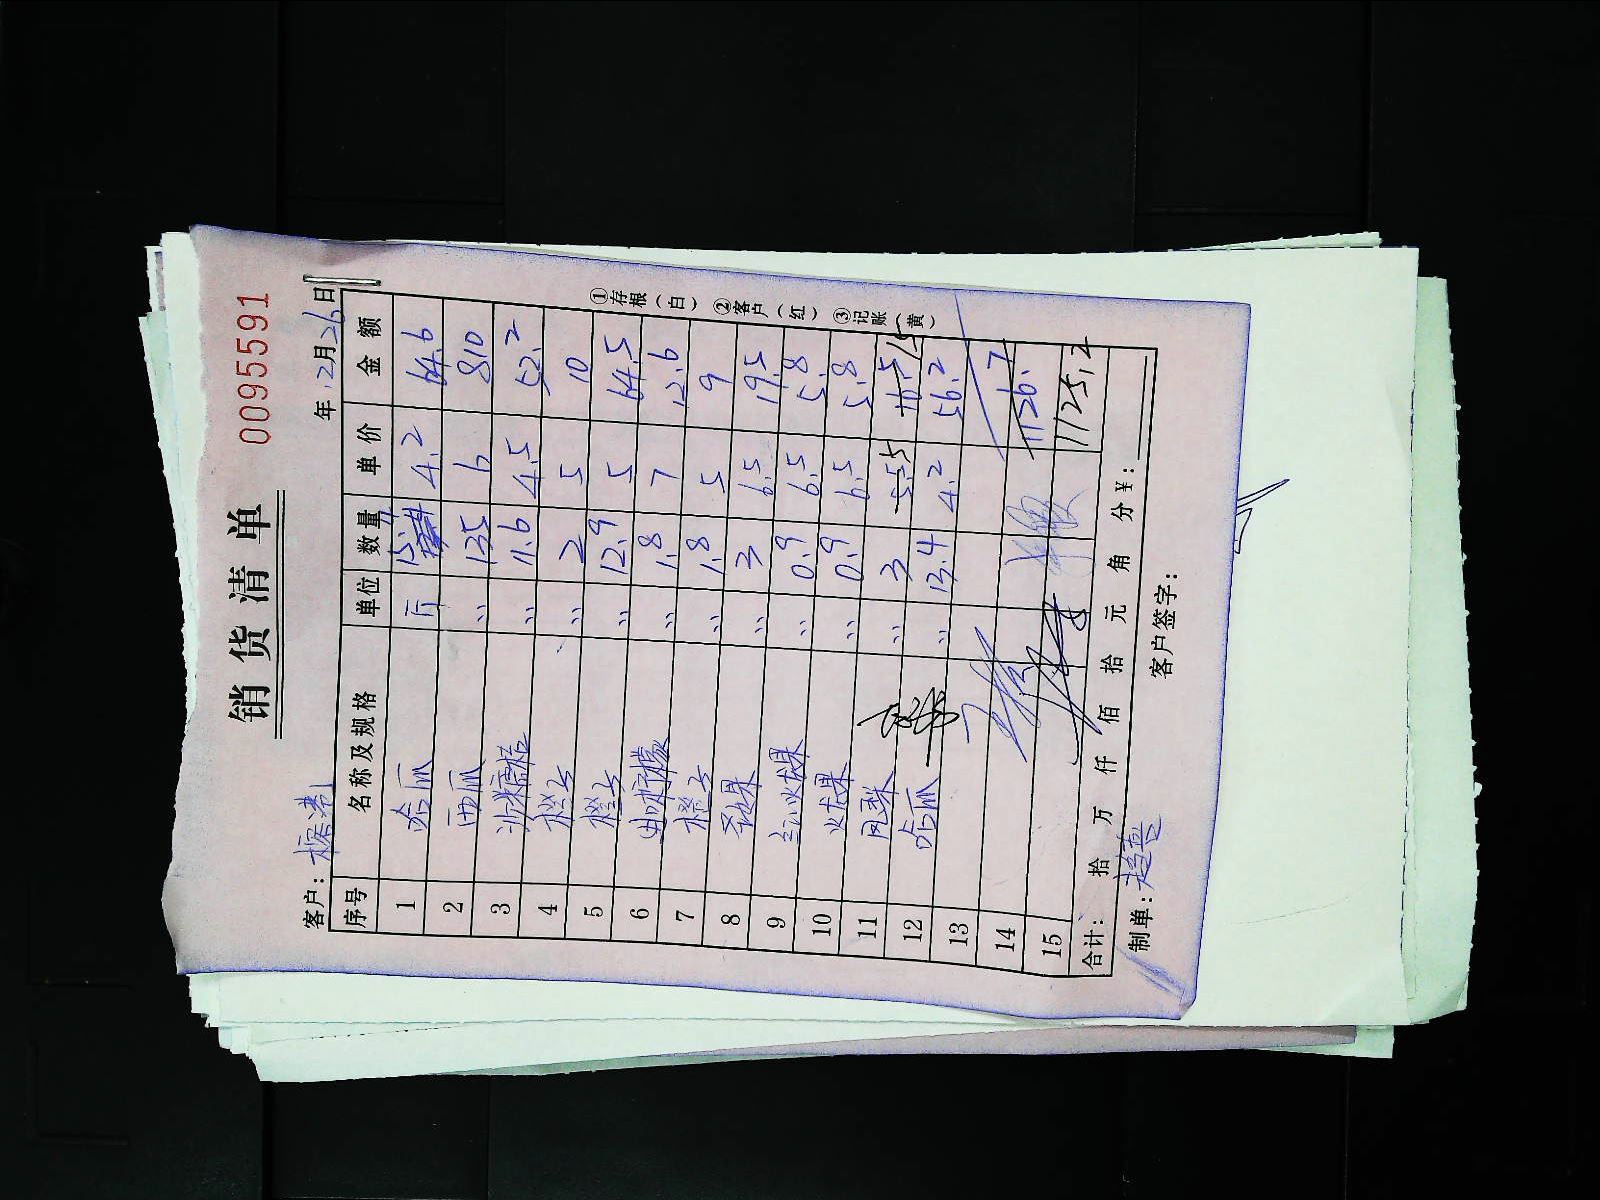 销货清单
0095591
客户：
年12月26日
序号 名称及规格 单位 数量 单价 金额
1 哈瓜 斤 15.4 4.2 64.6
2 西瓜 〃 135 6 810
3 沙糖桔 〃 11.6 4.5 52.2
4 橙子 〃 2 5 10
5 橙子 〃 12.9 5 64.5
6 柠檬 〃 1.8 7 12.6
7 橙子 〃 1.8 5 9
8 〃 3 6.5 19.5
9 红火龙果 〃 0.9 6.5 5.8
10 火龙果 〃 0.9 6.5 5.8
11 〃 3 5 15
12 哈瓜 〃 13.4 4.2 56.2
13
14 1126.7
15 1125.2
合计： 拾 万 仟 佰 拾 元 角 分 ¥：
制单：
客户签字：
①存根（白） ②客户（红） ③记账（黄）